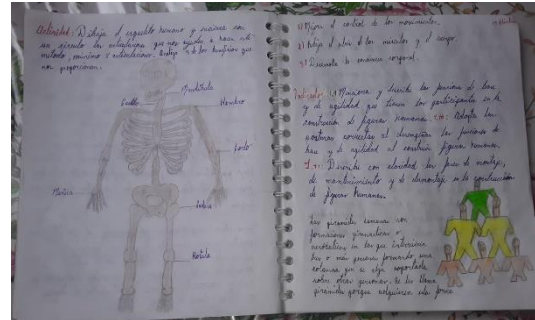 Actividad: Dibuja el esqueleto humano y encierra con
un círculo las articulaciones que nos ayudan a hacer este
método, mínimo 5 articulaciones. Anota 3 de los beneficios que
nos proporcionan.
Mandíbula
Cuello
Hombro
Codo
Muñeca
Rótula
1) Mejora el control de los movimientos.
2) Relaja el de los músculos y el cuerpo.
3) Desarrolla la conciencia corporal.
Indicador: Menciona y describe las funciones de base
y de agilidad que tienen los participantes en la
construcción de figuras humanas. Adopta las
posturas correctas al desempeñar las funciones de
base y de agilidad al construir figuras humanas.
Describe con claridad las fases de montaje,
de mantenimiento y de desmontaje en la construcción
de figuras humanas.
Las pirámides humanas son
formaciones gimnásticas o
acrobáticas en las que intervienen
tres o más personas formando una
columna que se eleva soportada
sobre otras personas. Se les llama
pirámides porque adquieren esta forma